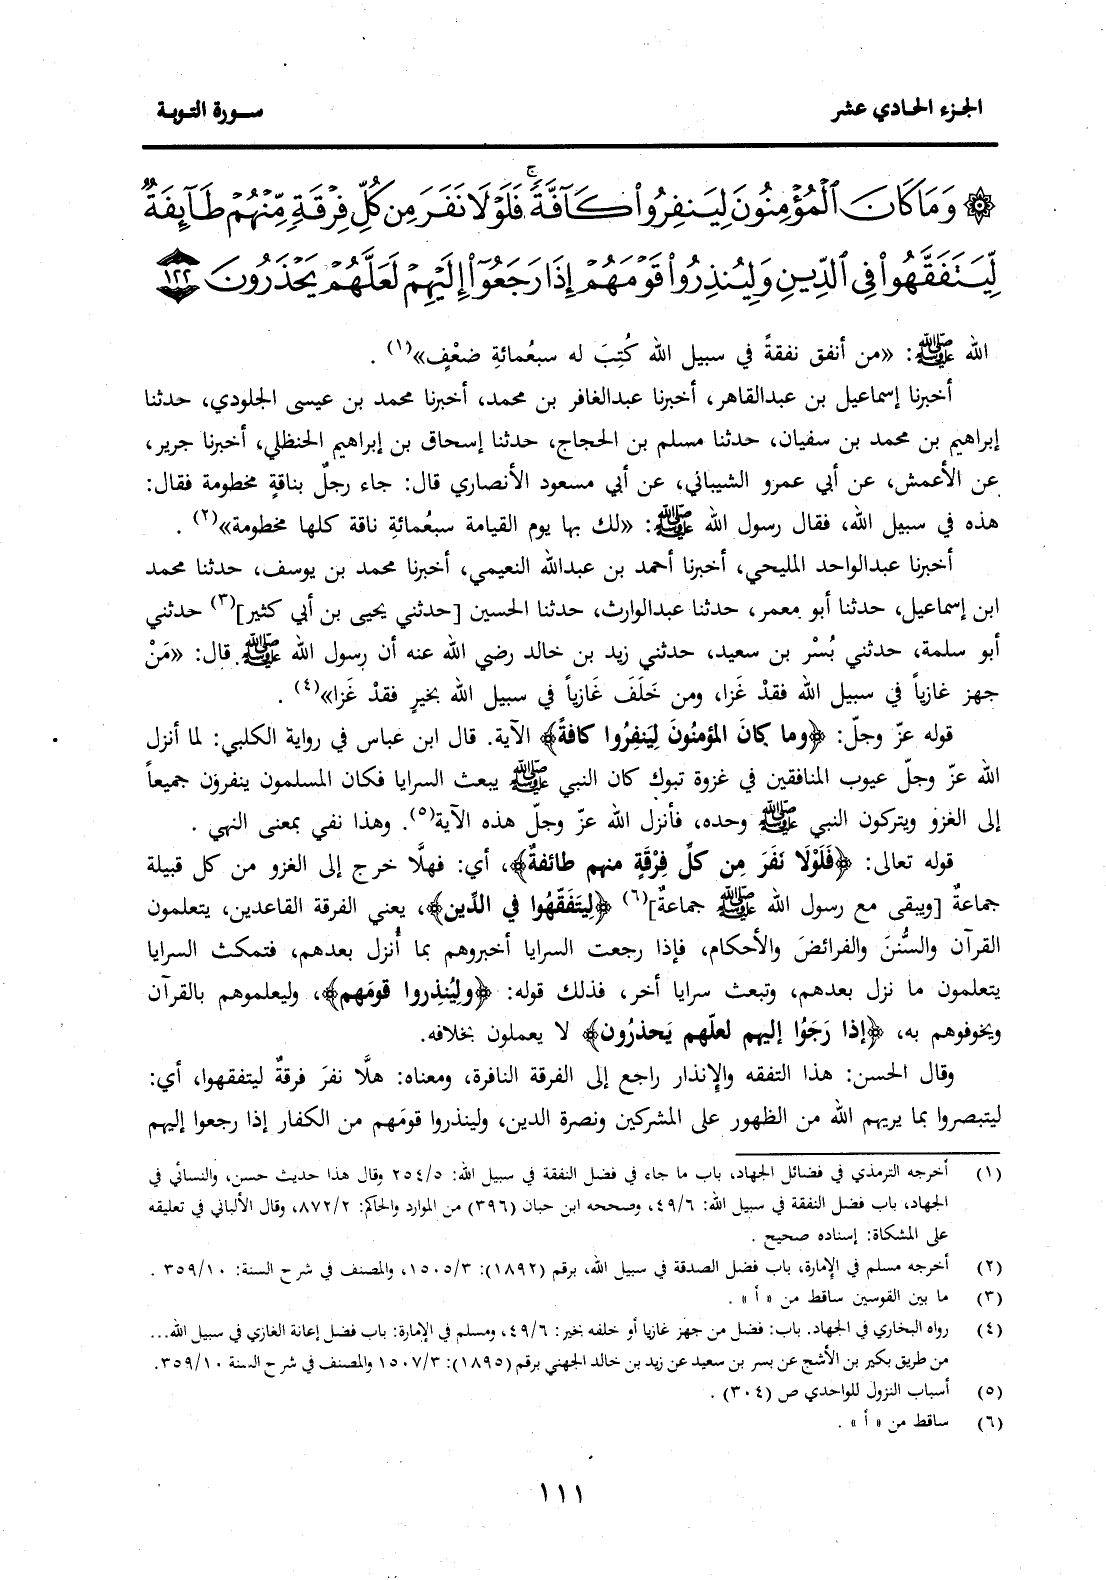 الجزء الحادي عشر
سورة التوبة
۞ وَمَا كَانَ الْمُؤْمِنُونَ لِيَنفِرُوا كَآفَّةً ۚ فَلَوْلَا نَفَرَ مِن كُلِّ فِرْقَةٍ مِّنْهُمْ طَآئِفَةٌ
لِّيَتَفَقَّهُوا فِي الدِّينِ وَلِيُنذِرُوا قَوْمَهُمْ إِذَا رَجَعُوٓا إِلَيْهِمْ لَعَلَّهُمْ يَحْذَرُونَ ١٢٢
الله ﷺ: «من أنفق نفقةً في سبيل الله كُتِبَ له سبعُمائةِ ضعْفٍ»(١) .
أخبرنا إسماعيل بن عبدالقاهر، أخبرنا عبدالغافر بن محمد، أخبرنا محمد بن عيسى الجلودي، حدثنا
إبراهيم بن محمد بن سفيان، حدثنا مسلم بن الحجاج، حدثنا إسحاق بن إبراهيم الحنظلي، أخبرنا جرير،
عن الأعمش، عن أبي عمرو الشيباني، عن أبي مسعود الأنصاري قال: جاء رجلٌ بناقةٍ مخطومة فقال:
هذه في سبيل الله، فقال رسول الله ﷺ: «لك بها يوم القيامة سبعُمائةِ ناقة كلها مخطومة»(٢) .
أخبرنا عبدالواحد المليحي، أخبرنا أحمد بن عبدالله النعيمي، أخبرنا محمد بن يوسف، حدثنا محمد
ابن إسماعيل، حدثنا أبو معمر، حدثنا عبدالوارث، حدثنا الحسين [حدثني يحيى بن أبي كثير](٣) حدثني
أبو سلمة، حدثني بُسْر بن سعيد، حدثني زيد بن خالد رضي الله عنه أن رسول الله ﷺ قال: «مَنْ
جهز غازياً في سبيل الله فقدْ غَزا، ومن خَلَفَ غَازياً في سبيل الله بخيرٍ فقدْ غَزا»(٤) .
قوله عزّ وجلّ: ﴿وما كانَ المؤمنُونَ لِيَنفِرُوا كافةً﴾ الآية. قال ابن عباس في رواية الكلبي: لما أنزل
الله عزّ وجلّ عيوب المنافقين في غزوة تبوك كان النبي ﷺ يبعث السرايا فكان المسلمون ينفرون جميعاً
إلى الغزو ويتركون النبي ﷺ وحده، فأنزل الله عزّ وجلّ هذه الآية(٥). وهذا نفي بمعنى النهي .
قوله تعالى: ﴿فَلَوْلَا نَفَرَ مِن كلِّ فِرْقَةٍ منهم طائفةٌ﴾، أي: فهلَّا خرج إلى الغزو من كل قبيلة
جماعةٌ [ويبقى مع رسول الله ﷺ جماعةٌ](٦) ﴿لِيتَفَقّهُوا في الدِّين﴾، يعني الفرقة القاعدين، يتعلمون
القرآن والسُّننَ والفرائضَ والأحكام، فإذا رجعت السرايا أخبروهم بما أُنزل بعدهم، فتمكث السرايا
يتعلمون ما نزل بعدهم، وتبعث سرايا أخر، فذلك قوله: ﴿ولِيُنذِروا قومَهم﴾، وليعلموهم بالقرآن
ويخوفوهم به، ﴿إذا رَجَعُوا إليهم لعلّهم يَحذرُون﴾ لا يعملون بخلافه.
وقال الحسن: هذا التفقه والإنذار راجع إلى الفرقة النافرة، ومعناه: هلَّا نفرَ فرقةٌ ليتفقهوا، أي:
ليتبصروا بما يريهم الله من الظهور على المشركين ونصرة الدين، ولينذروا قومَهم من الكفار إذا رجعوا إليهم
(١) أخرجه الترمذي في فضائل الجهاد، باب ما جاء في فضل النفقة في سبيل الله: ٢٥٤/٥ وقال هذا حديث حسن، والنسائي في
الجهاد، باب فضل النفقة في سبيل الله: ٤٩/٦، وصححه ابن حبان (٣٩٦) من الموارد والحاكم: ٨٧٢/٢، وقال الألباني في تعليقه
على المشكاة: إسناده صحيح .
(٢) أخرجه مسلم في الإمارة، باب فضل الصدقة في سبيل الله، برقم (١٨٩٢): ١٥٠٥/٣، والمصنف في شرح السنة: ٣٥٩/١٠ .
(٣) ما بين القوسين ساقط من « أ » .
(٤) رواه البخاري في الجهاد. باب: فضل من جهز غازيا أو خلفه بخير: ٤٩/٦، ومسلم في الإمارة: باب فضل إعانة الغازي في سبيل الله...
من طريق بكير بن الأشج عن بسر بن سعيد عن زيد بن خالد الجهني برقم (١٨٩٥): ١٥٠٧/٣ والمصنف في شرح السنة ٣٥٩/١٠.
(٥) أسباب النزول للواحدي ص (٣٠٤) .
(٦) ساقط من « أ » .
١١١